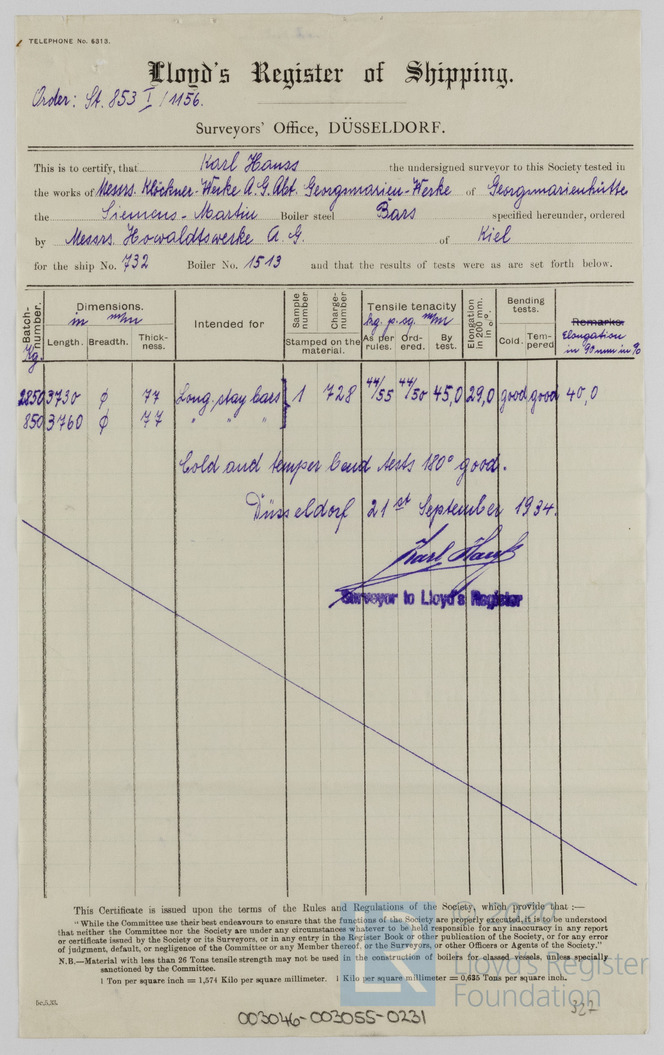 TELEPHONE No. 6313.
Lloyd's Register of Shipping.
Order: St. 853 I / 1156.
Surveyors' Office, DÜSSELDORF.
This is to certify, that Karl Hauss , the undersigned surveyor to this Society tested in
the works of Messrs. Klöckner-Werke A.G. Abt. Georgsmarien-Werke of Georgsmarienhütte
the Siemens-Martin Boiler steel Bars specified hereunder, ordered
by Messrs Howaldtswerke A.G. of Kiel
for the ship No. 732 Boiler No. 1513 and that the results of tests were as are set forth below.
Batch-number. Kg. Dimensions. in m/m Length. Breadth. Thick-ness. Intended for Sample number Charge-number Stamped on the material. Tensile tenacity kg. p. sq. m/m As per rules. Ord-ered. By test. Elongation in 200 mm. in %. Bending tests. Cold. Tem-pered Remarks. Elongation in 90 mm in %
2850 3730 φ 77 Long. stay bars 1 728 44/55 44/50 45,0 29,0 good good 40,0
850 3760 φ 77 " " "
Cold and temper bend tests 180° good.
Düsseldorf 21st September 1934.
Karl Hauß
Surveyor to Lloyd's Register
This Certificate is issued upon the terms of the Rules and Regulations of the Society, which provide that :—
"While the Committee use their best endeavours to ensure that the functions of the Society are properly executed, it is to be understood
that neither the Committee nor the Society are under any circumstances whatever to be held responsible for any inaccuracy in any report
or certificate issued by the Society or its Surveyors, or in any entry in the Register Book or other publication of the Society, or for any error
of judgment, default, or negligence of the Committee or any Member thereof, or the Surveyors, or other Officers or Agents of the Society."
N.B.—Material with less than 26 Tons tensile strength may not be used in the construction of boilers for classed vessels, unless specially
sanctioned by the Committee.
1 Ton per square inch = 1,574 Kilo per square millimeter. 1 Kilo per square millimeter = 0,635 Tons per square inch.
Lloyd's Register
Foundation
003046-003055-0231
327